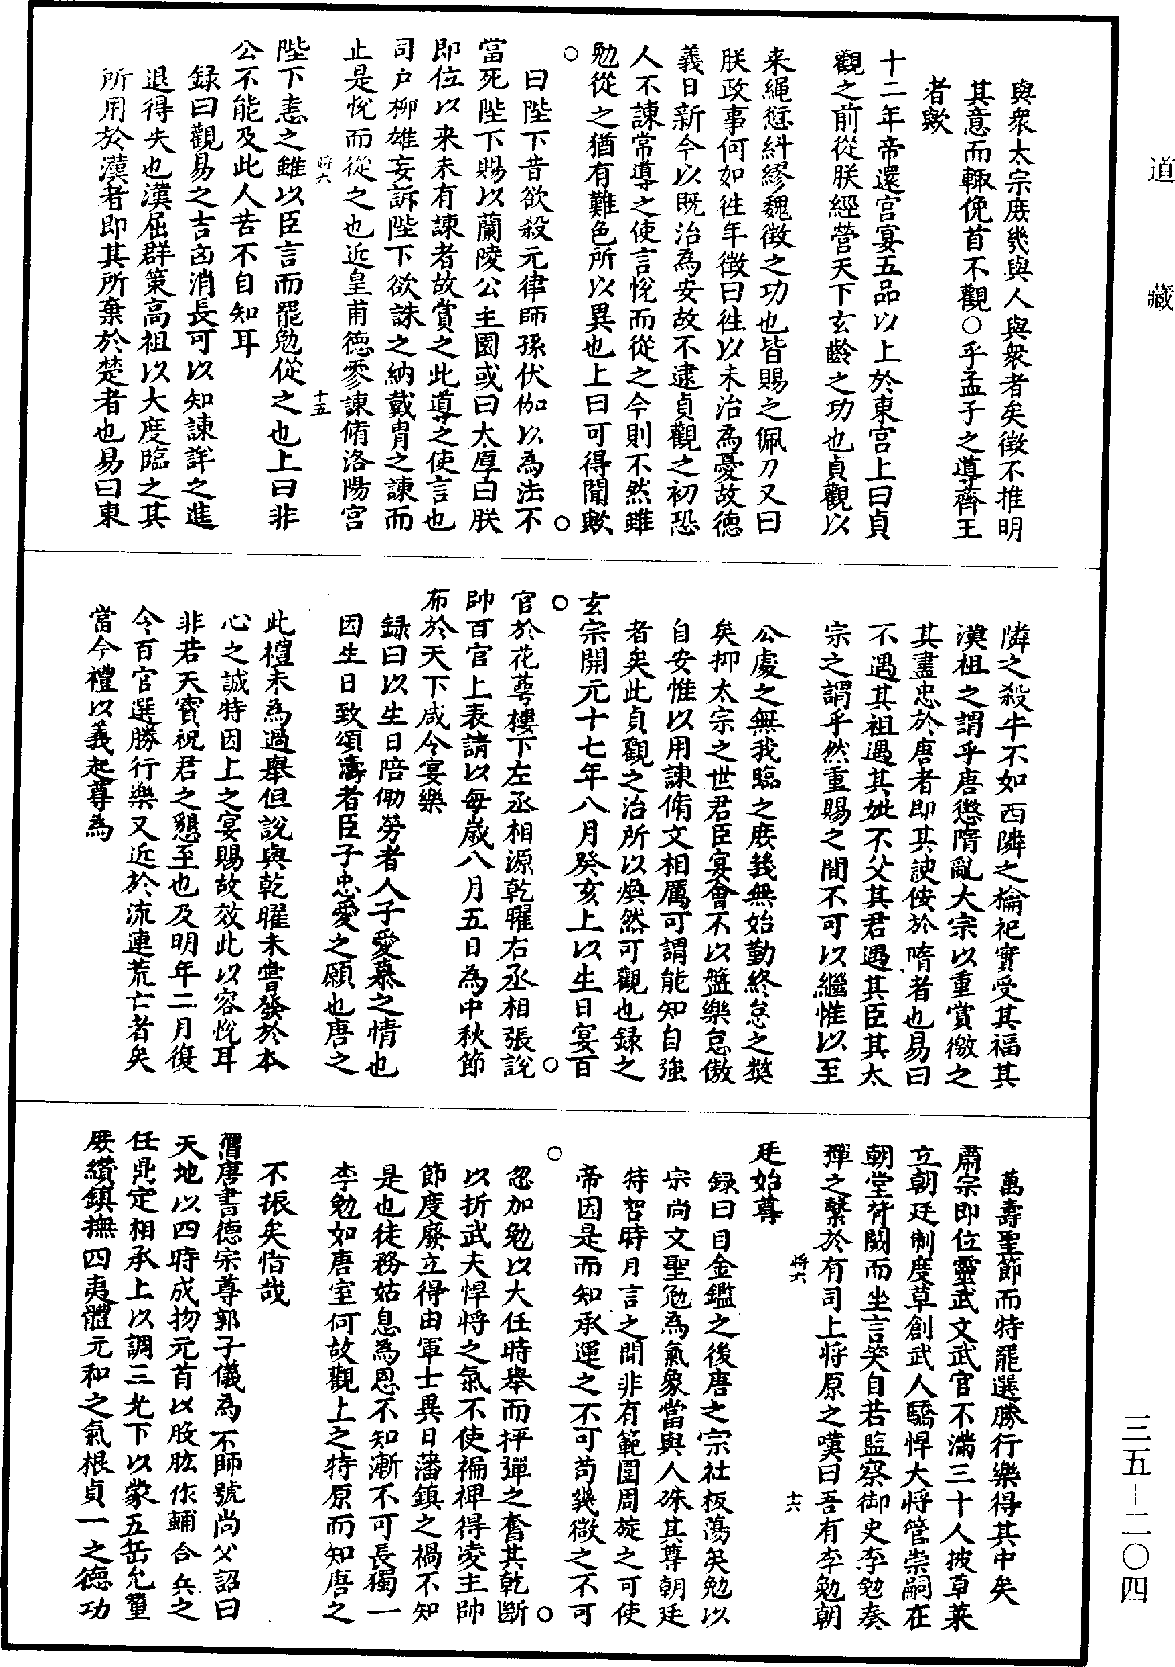 道藏
與衆太宗庶幾與人與衆者矣徵不推明
其意而輒俛首不觀○乎孟子之導齊王
者歟
十二年帝還宮宴五品以上於東宮上曰貞
觀之前從朕經營天下玄齡之功也貞觀以
来繩愆糾繆魏徵之功也皆賜之佩刀又曰
朕政事何如徃年徵曰徃以未治為憂故德
義日新今以既治為安故不逮貞觀之初恐
人不諫常導之使言悅而從之今則不然雖
勉從之猶有難色所以異也上曰可得聞歟
○
曰陛下昔欲殺元律師孫伏伽以為法不○
當死陛下賜以蘭陵公主園或曰太厚曰朕
即位以来未有諫者故賞之此導之使言也
司戶柳雄妄訴陛下欲誅之納戴胄之諫而
止是悅而從之也近皇甫德參諫脩洛陽宮
將六 十五
陛下恚之雖以臣言而罷勉從之也上曰非
公不能及此人苦不自知耳
録曰觀易之吉凶消長可以知諫諍之進
退得失也漢屈群策高祖以大度臨之其
所用於漢者即其所棄於楚者也易曰東
隣之殺牛不如西隣之禴祀實受其福其
漢祖之謂乎唐懲隋亂大宗以重賞激之
其盡忠於唐者即其諛佞於隋者也易曰
不遇其祖遇其妣不父其君遇其臣其太
宗之謂乎然重賜之間不可以繼惟以至
公處之無我臨之庶幾無始勤終怠之獘
矣抑太宗之世君臣宴會不以盤樂怠傲
自安惟以用諫脩文相厲可謂能知自強
者矣此貞觀之治所以煥然可觀也録之
玄宗開元十七年八月癸亥上以生日宴百
○
官於花萼樓下左丞相源乾曜右丞相張說○
帥百官上表請以每嵗八月五日為中秋節
布於天下咸令宴樂
録曰以生日陪劬勞者人子愛慕之情也
因生日致頌濤者臣子忠愛之願也唐之
此禮未為過舉但說與乾曜未甞發於本
心之誠特因上之宴賜故效此以容悅耳
非若天寶祝君之懇至也及明年二月復
令百官選勝行樂又近於流連荒亡者矣
當今禮以義起尊為
萬壽聖節而特罷選勝行樂得其中矣
肅宗即位靈武文武官不滿三十人披草萊
立朝廷制度草創武人驕悍大将管崇嗣在
朝堂背闕而坐言笑自若監察御史李勉奏
彈之繫於有司上将原之嘆曰吾有李勉朝
將六 十六
廷始尊
録曰目金鑑之後唐之宗社板蕩矣勉以
宗尚文聖勉為氣象當與人殊其尊朝廷
特暫時月言之間非有範圍周旋之可使
帝因是而知承運之不可苟幾微之不可
○
忽加勉以大任時舉而抨彈之奮其乾斷○
以折武夫悍将之氣不使褊裨得凌主帥
節度廢立得由軍士異日藩鎮之禍不知
是也徒務姑息為恩不知漸不可長獨一
李勉如唐室何故觀上之特原而知唐之
不振矣惜哉
舊唐書德宗尊郭子儀為不師號尚父詔曰
天地以四時成物元首以股肱作輔合兵之
任鼎定相承上以調三光下以蒙五岳允釐
庶績鎮撫四夷體元和之氣根貞一之德功
三五—二〇四